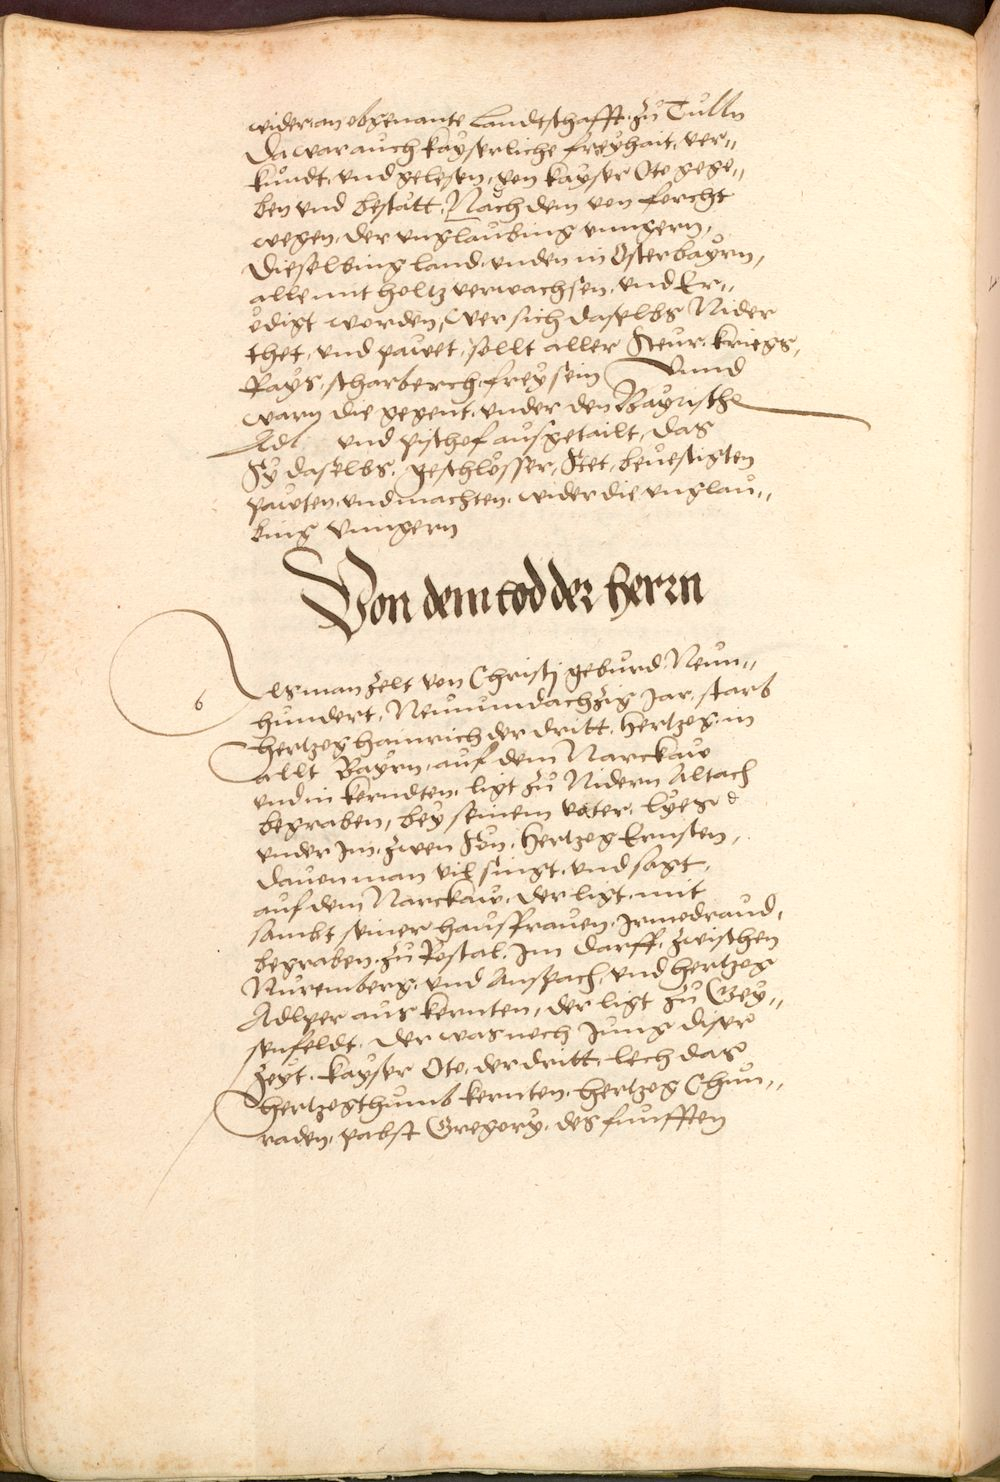 wider, an obgenante Landtschafft, zů Tulln
Da war auch kayserliche freyhait, ver„
kundt, und gelesen, von kayser Oto gege„
ben und bestätt. Nach dem von forcht
wegen, der unglaubing unngern,
Dieselbing land, unden in Osterbayrn,
alle mit holtz verwachsen, und Er„
ödigt worden, wer sich daselbs Nider
thet, und pawet, sollt aller Steur, kriegs,
Rays, scharberch, frey sein Vnnd
warn die gegent, under den Bayrische
Adl und pischof ausgetailt, das
Sy daselbs, geschlösser, Stet, bevestigten
pawten, und machten, wider die unglau„
bing unngern
Von dem tod der herrn
6
Als man zelt von Christj geburd Neun„
hundert, Neunundachzig Jar, starb
hertzog hainrich der dritt, hertzog in
allt Bayrn, auf dem Narckaw
und in kerndten, ligt zů Nidern Altach
begraben, bey seinem vater, lyess
under Im, zwen Sün, hertzog Ernsten,
davon man vil singt, und sagt,
auf dem Narckaw, der ligt, mit
sambt seiner hausfrauen, Irmedraud,
begraben, zů Rostal, Im darff, zwischen
Nuremberg, und Anspach, und hertzog
Adlger aus kernten, der ligt zů Gey„
senfeldt, Der was noch Jung diser
zeyt, kayser Oto, der dritt, lech das
hertzogthumb kernten, hertzog Chun„
raden, pabst Gregory, des funfften